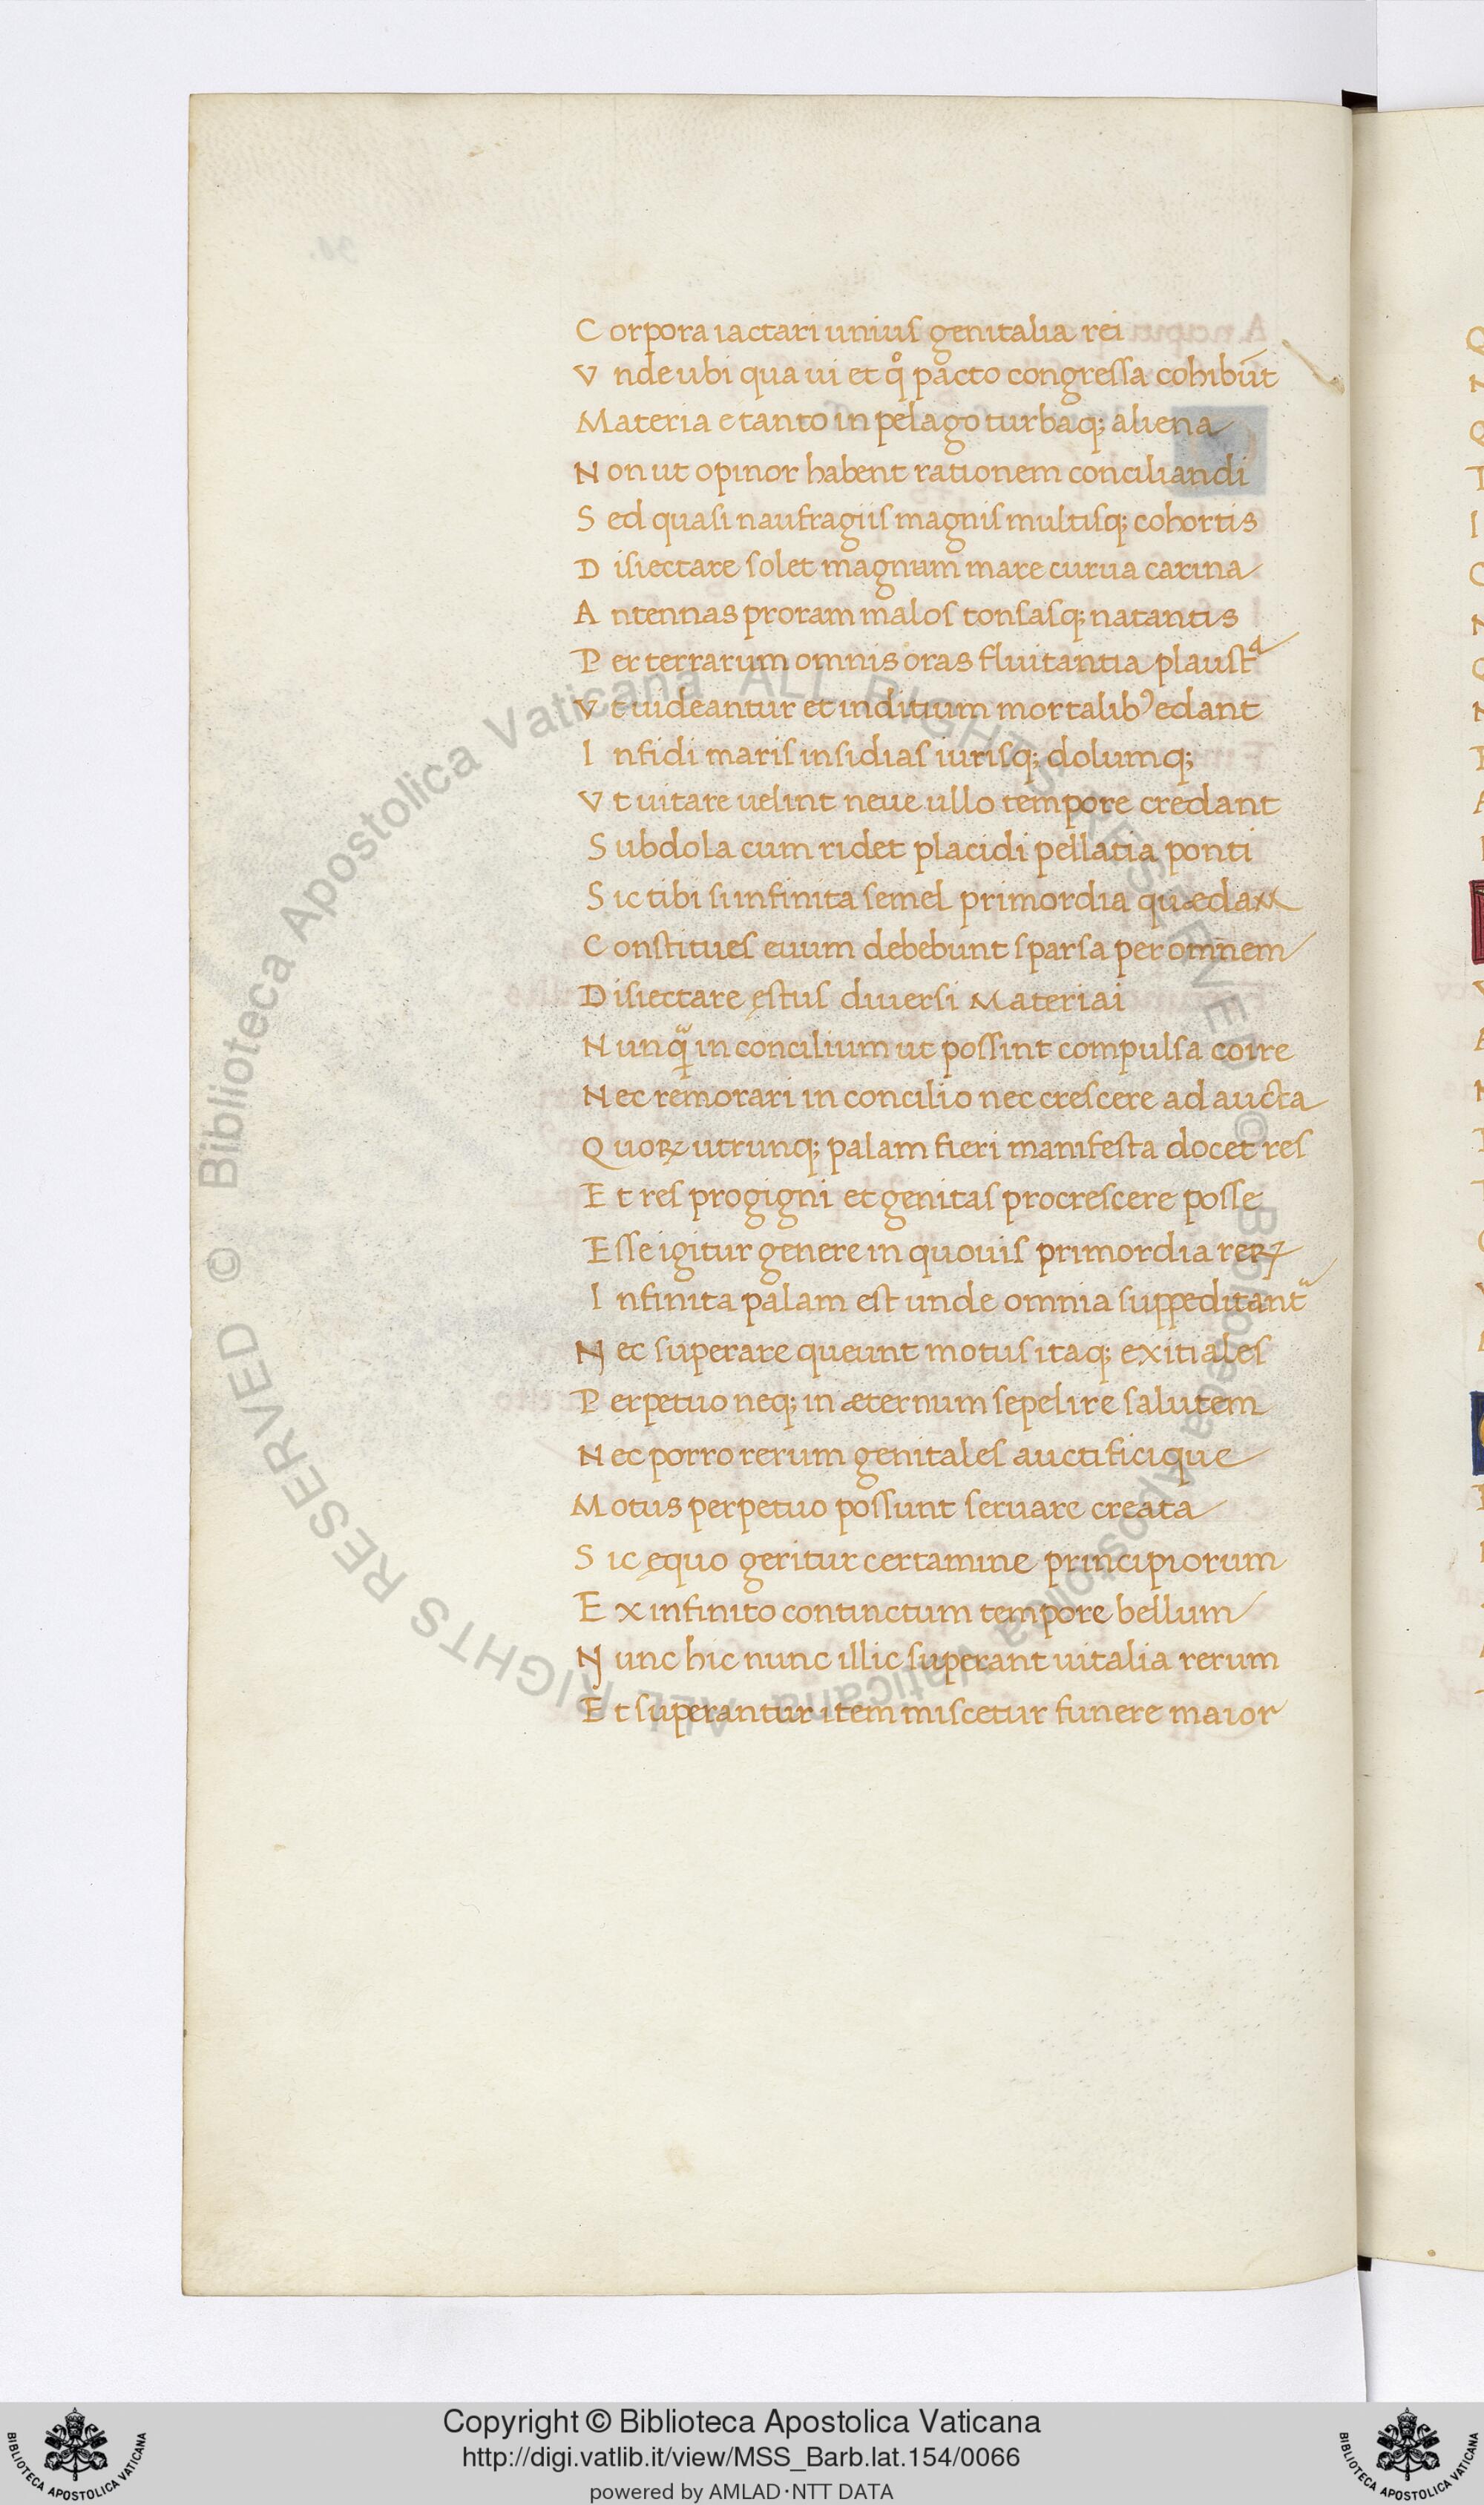 Corpora iactari unius genitalia rei
Vnde ubi qua ui et qͦ pacto congressa cohibūt
Materia e tanto in pelago turbaq; aliena
Non ut opinor habent rationem conciliandi
Sed quasi naufragiis magnis multisq; cohortis
Disiectare solet magnum mare curua carina
Antennas proram malos tonsasq; natantis
Per terrarum omnis oras fluitantia plaustᵃ
Vt uideantur et inditium mortalibꝰ edant
Infidi maris insidias iurisq; dolumq;
Vt uitare uelint neue ullo tempore credant
Subdola cum ridet placidi pellatia ponti
Sic tibi si infinita semel primordia quædam
Constitues euum debebunt sparsa per omnem
Disiectare ęstus diuersi Materiai
Nunqᷓ in concilium ut possint compulsa coire
Nec remorari in concilio nec crescere ad aucta
Quoꝝ utrunq; palam fieri manifesta docet res
Et res progigni et genitas procrescere posse
Esse igitur genere in quouis primordia reꝝ
Infinita palam est unde omnia suppeditantᷓ
Nec superare queunt motus itaq; exitiales
Perpetuo neq; in æternum sepelire salutem
Nec porro rerum genitales auctificique
Motus perpetuo possunt seruare creata
Sic ęquo geritur certamine principiorum
Ex infinito continctum tempore bellum
Nunc hic nunc illic superant uitalia rerum
Et superantur item miscetur funere maior
© Biblioteca Apostolica Vaticana ALL RIGHTS RESERVED © Biblioteca Apostolica Vaticana ALL RIGHTS RESERVED
Copyright © Biblioteca Apostolica Vaticana
http://digi.vatlib.it/view/MSS_Barb.lat.154/0066
powered by AMLAD·NTT DATA
BIBLIOTECA APOSTOLICA VATICANA
BIBLIOTECA APOSTOLICA VATICANA